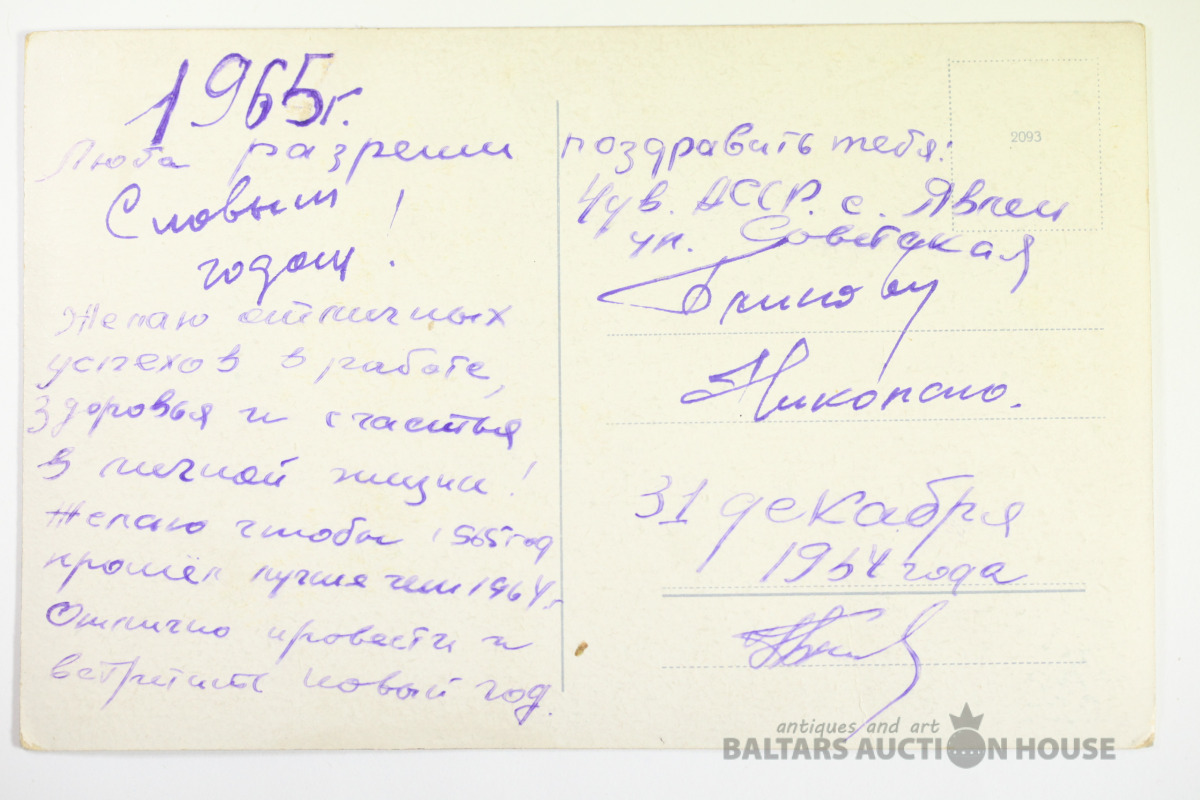 1965г.
Люба разреши поздравить тебя:
С новым !
годом !
Желаю отличных
успехов в работе,
здоровья и счастья
в личной жизни!
Желаю чтобы 1965 год
прошёл лучше чем 1964 г.
Отлично провести и
встретить новый год.
2093
Чув. АССР. с. Явлеи
ул. Советская
Блинову
Николаю.
31 декабря
1964 года
antiques and art
BALTARS AUCTION HOUSE